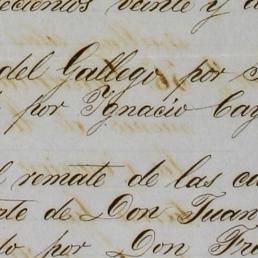 ecientos veinte y
del Gallego, por
por Ygnacio Cay
l remate de las ca
nte de Don Juan
do por Don Fre